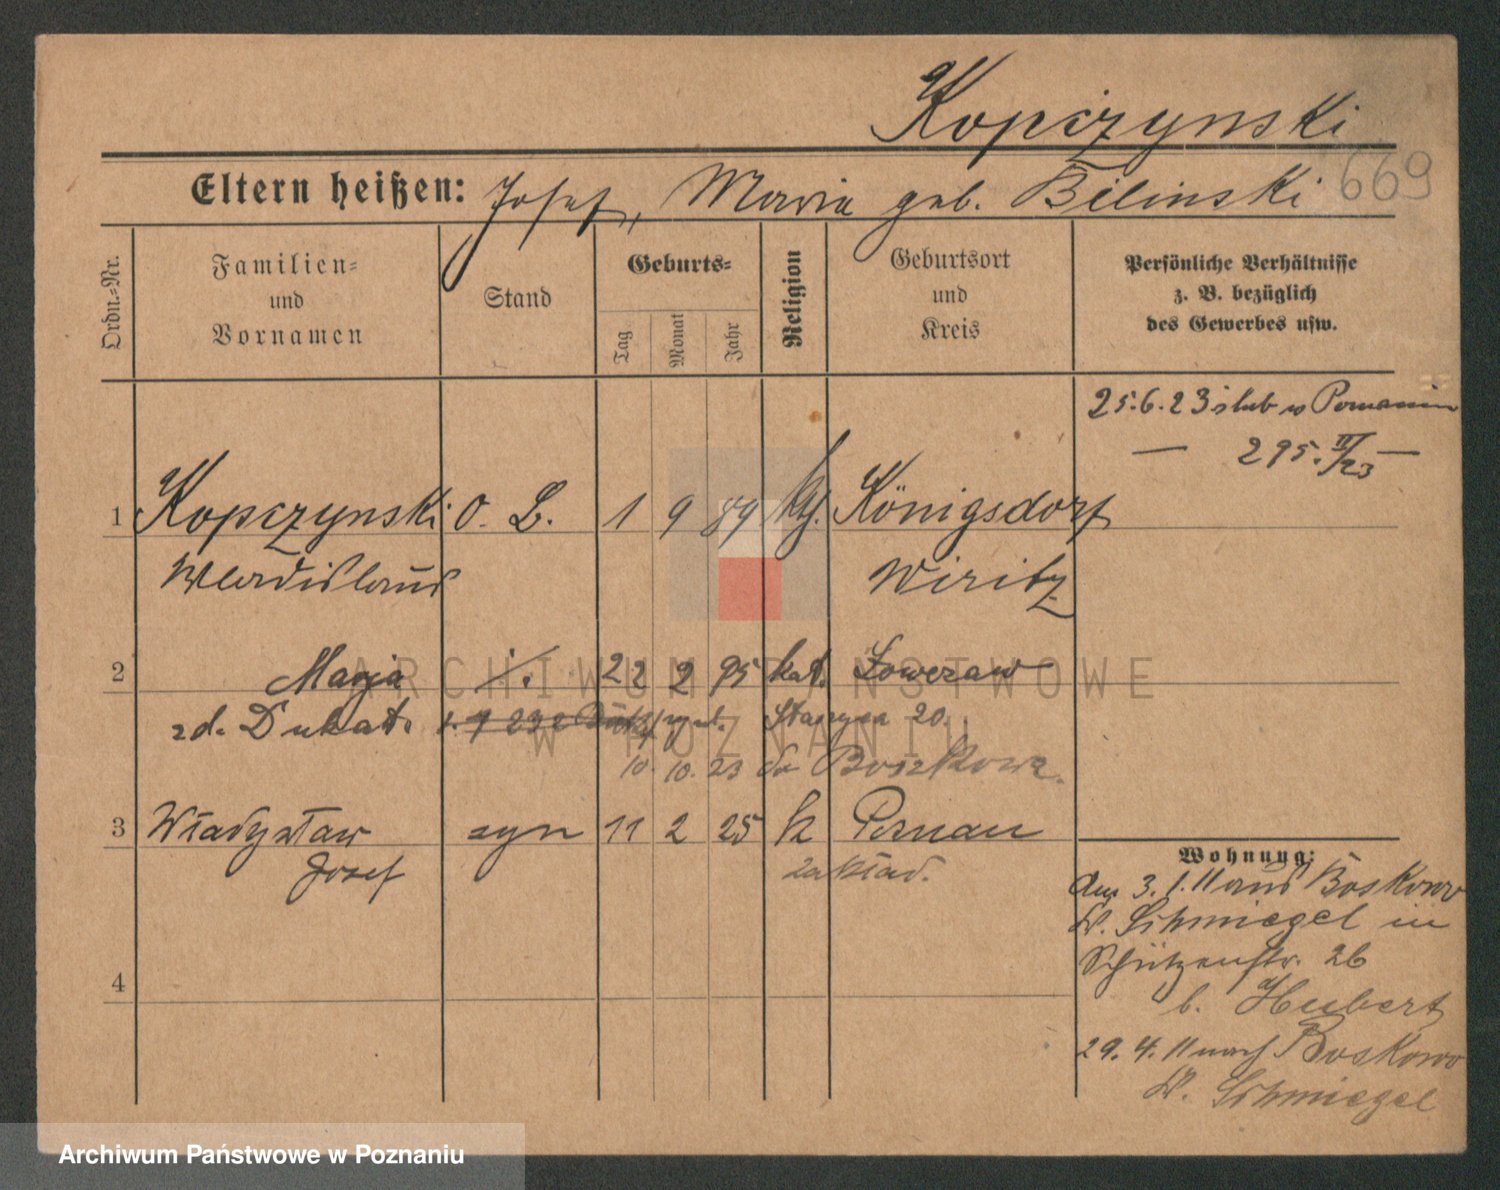 Kopczynski
669
Eltern heißen: Josef, Maria geb. Bilinski
Ordn.=Nr.
Familien=
und
Vornamen
Stand
Geburts=
Tag
Monat
Jahr
Religion
Geburtsort
und
Kreis
Persönliche Verhältnisse
z. B. bezüglich
des Gewerbes usw.
25.6.23 ślub w Poznaniu
— 295. II/23 —
1 Kopczynski O. L. 1 9 89 kth. Königsdorf
Wladislaus Wirsitz
2 Marja 22 2 95 kat.
zd. Dukat. 20
10. 10. 23 do Boszkowa.
3 Władysław syn 11 2 25 k Posnau
Josef zakład.
4
Wohnung:
Am 3.1.11 aus Boskowo
Kr. Schmiegel in
Schützenstr. 26
b. Hubert
29.4.11 nach Boskowo
Kr. Schmiegel
ARCHIWUM PAŃSTWOWE
W POZNANIU
Archiwum Państwowe w Poznaniu